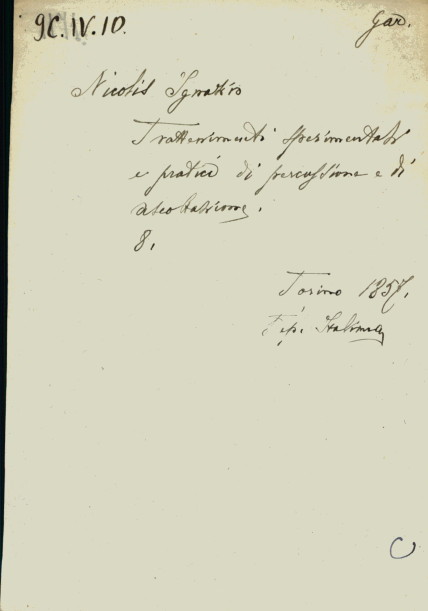 9C.IV.10.
Gar.
Nicolis Ignazio
Trattenimenti sperimentali
e pratici di percussione e di
ascoltazione.
8.
Torino 1857.
Tip. Italiana
C